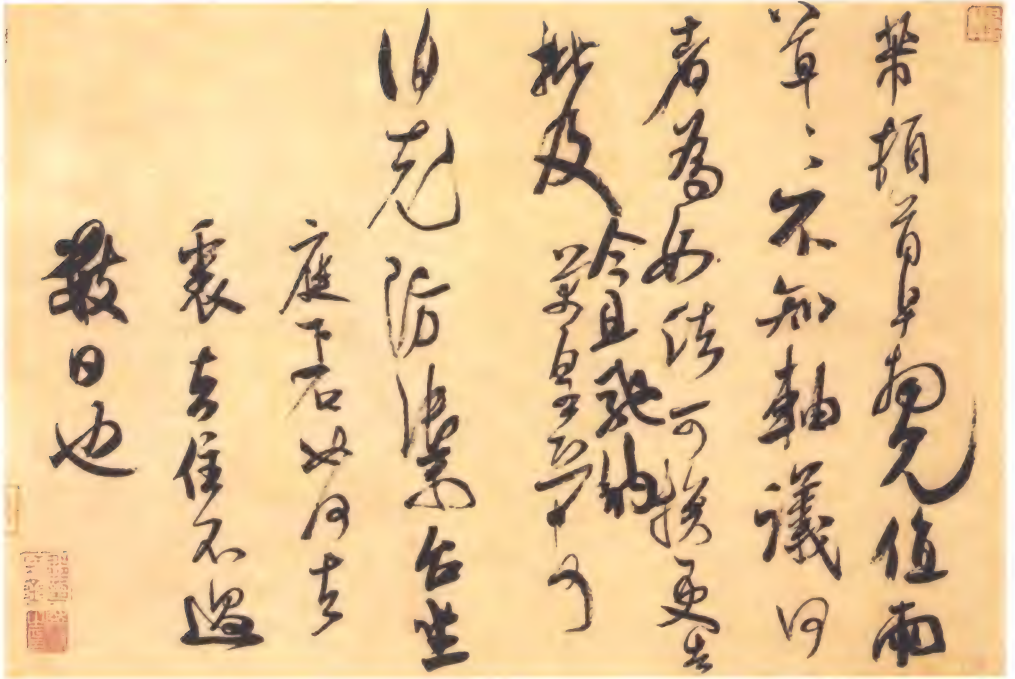 芾頓首早拜見值雨
草草不知軸議何
者為如法可換更告
批及今且馳納
芾皇恐頓首
伯充防禦台坐
庭下石如何去
裹去住不過
數日也